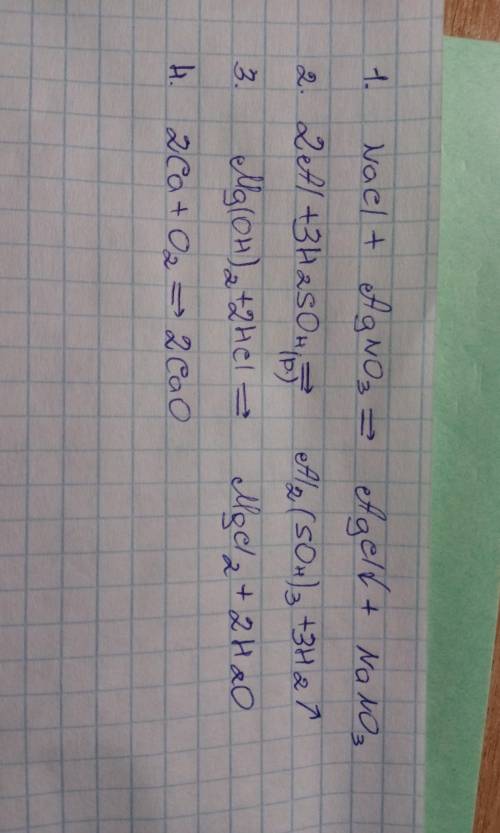 1. NaCl + AgNO3 => AgCl↓ + NaNO3
2. 2Al + 3H2SO4(р.) => Al2(SO4)3 + 3H2↑
3. Mg(OH)2 + 2HCl => MgCl2 + 2H2O
4. 2Ca + O2 => 2CaO